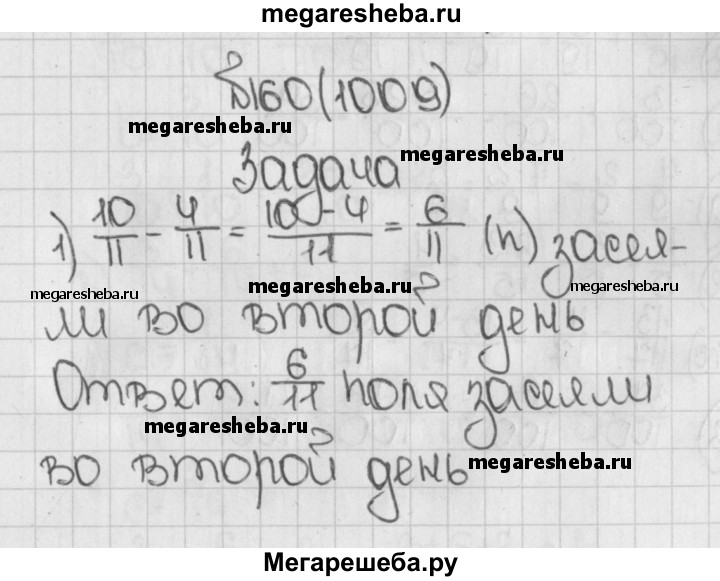 megaresheba.ru
№160(1009)
megaresheba.ru
Задача
megaresheba.ru
1) 10/11 - 4/11 = 10-4/11 = 6/11 (п) засея-
megaresheba.ru megaresheba.ru megaresheba.ru
ли во второй день
Ответ: 6/11 поля засеяли
megaresheba.ru megaresheba.ru
во второй день
megaresheba.ru
Мегарешеба.ру